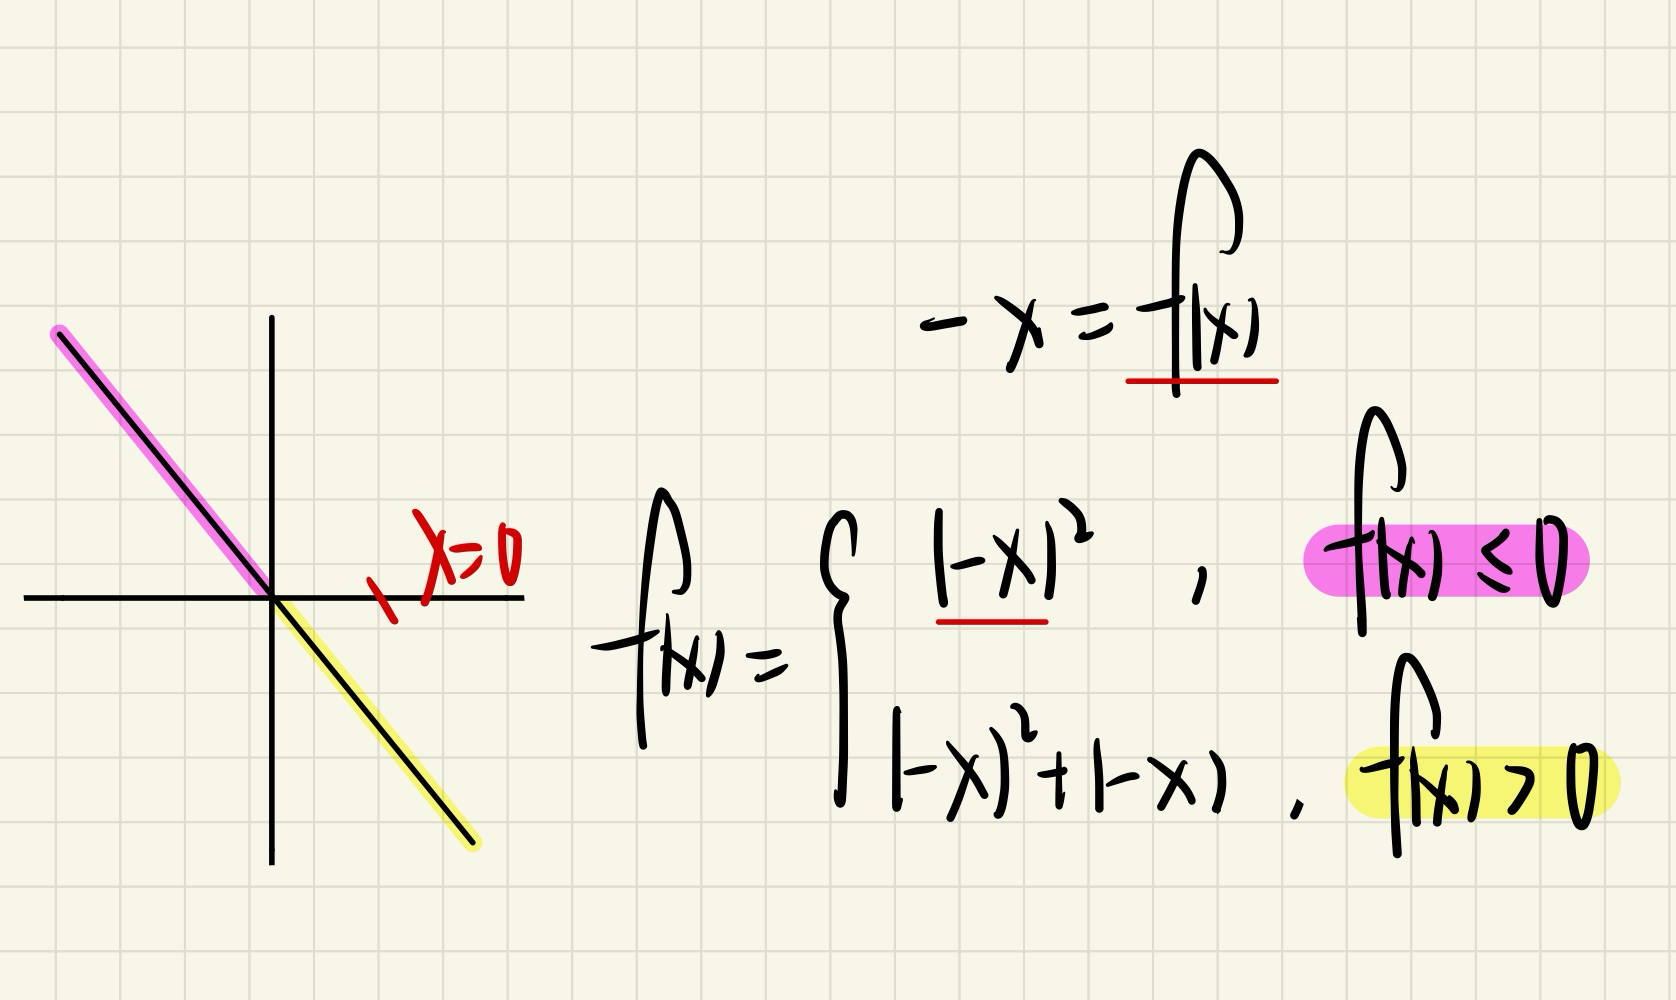 -x = f(x)
x=0
f(x) = { (-x)² , f(x) ≤ 0
(-x)² + (-x) , f(x) > 0